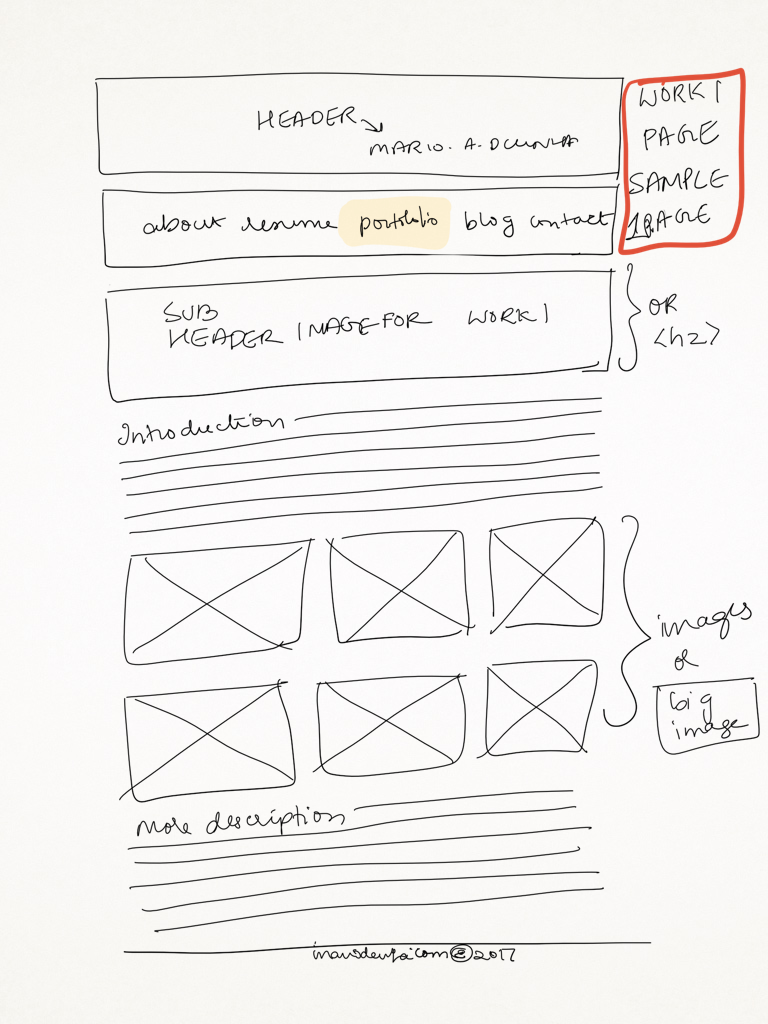 HEADER
MARIO. A. DCUNHA
WORK 1
PAGE
SAMPLE
PAGE
about resume portfolio blog contact
SUB
HEADER IMAGE FOR WORK 1
OR
<h2>
Introduction
images
or
big
image
More description
© 2017